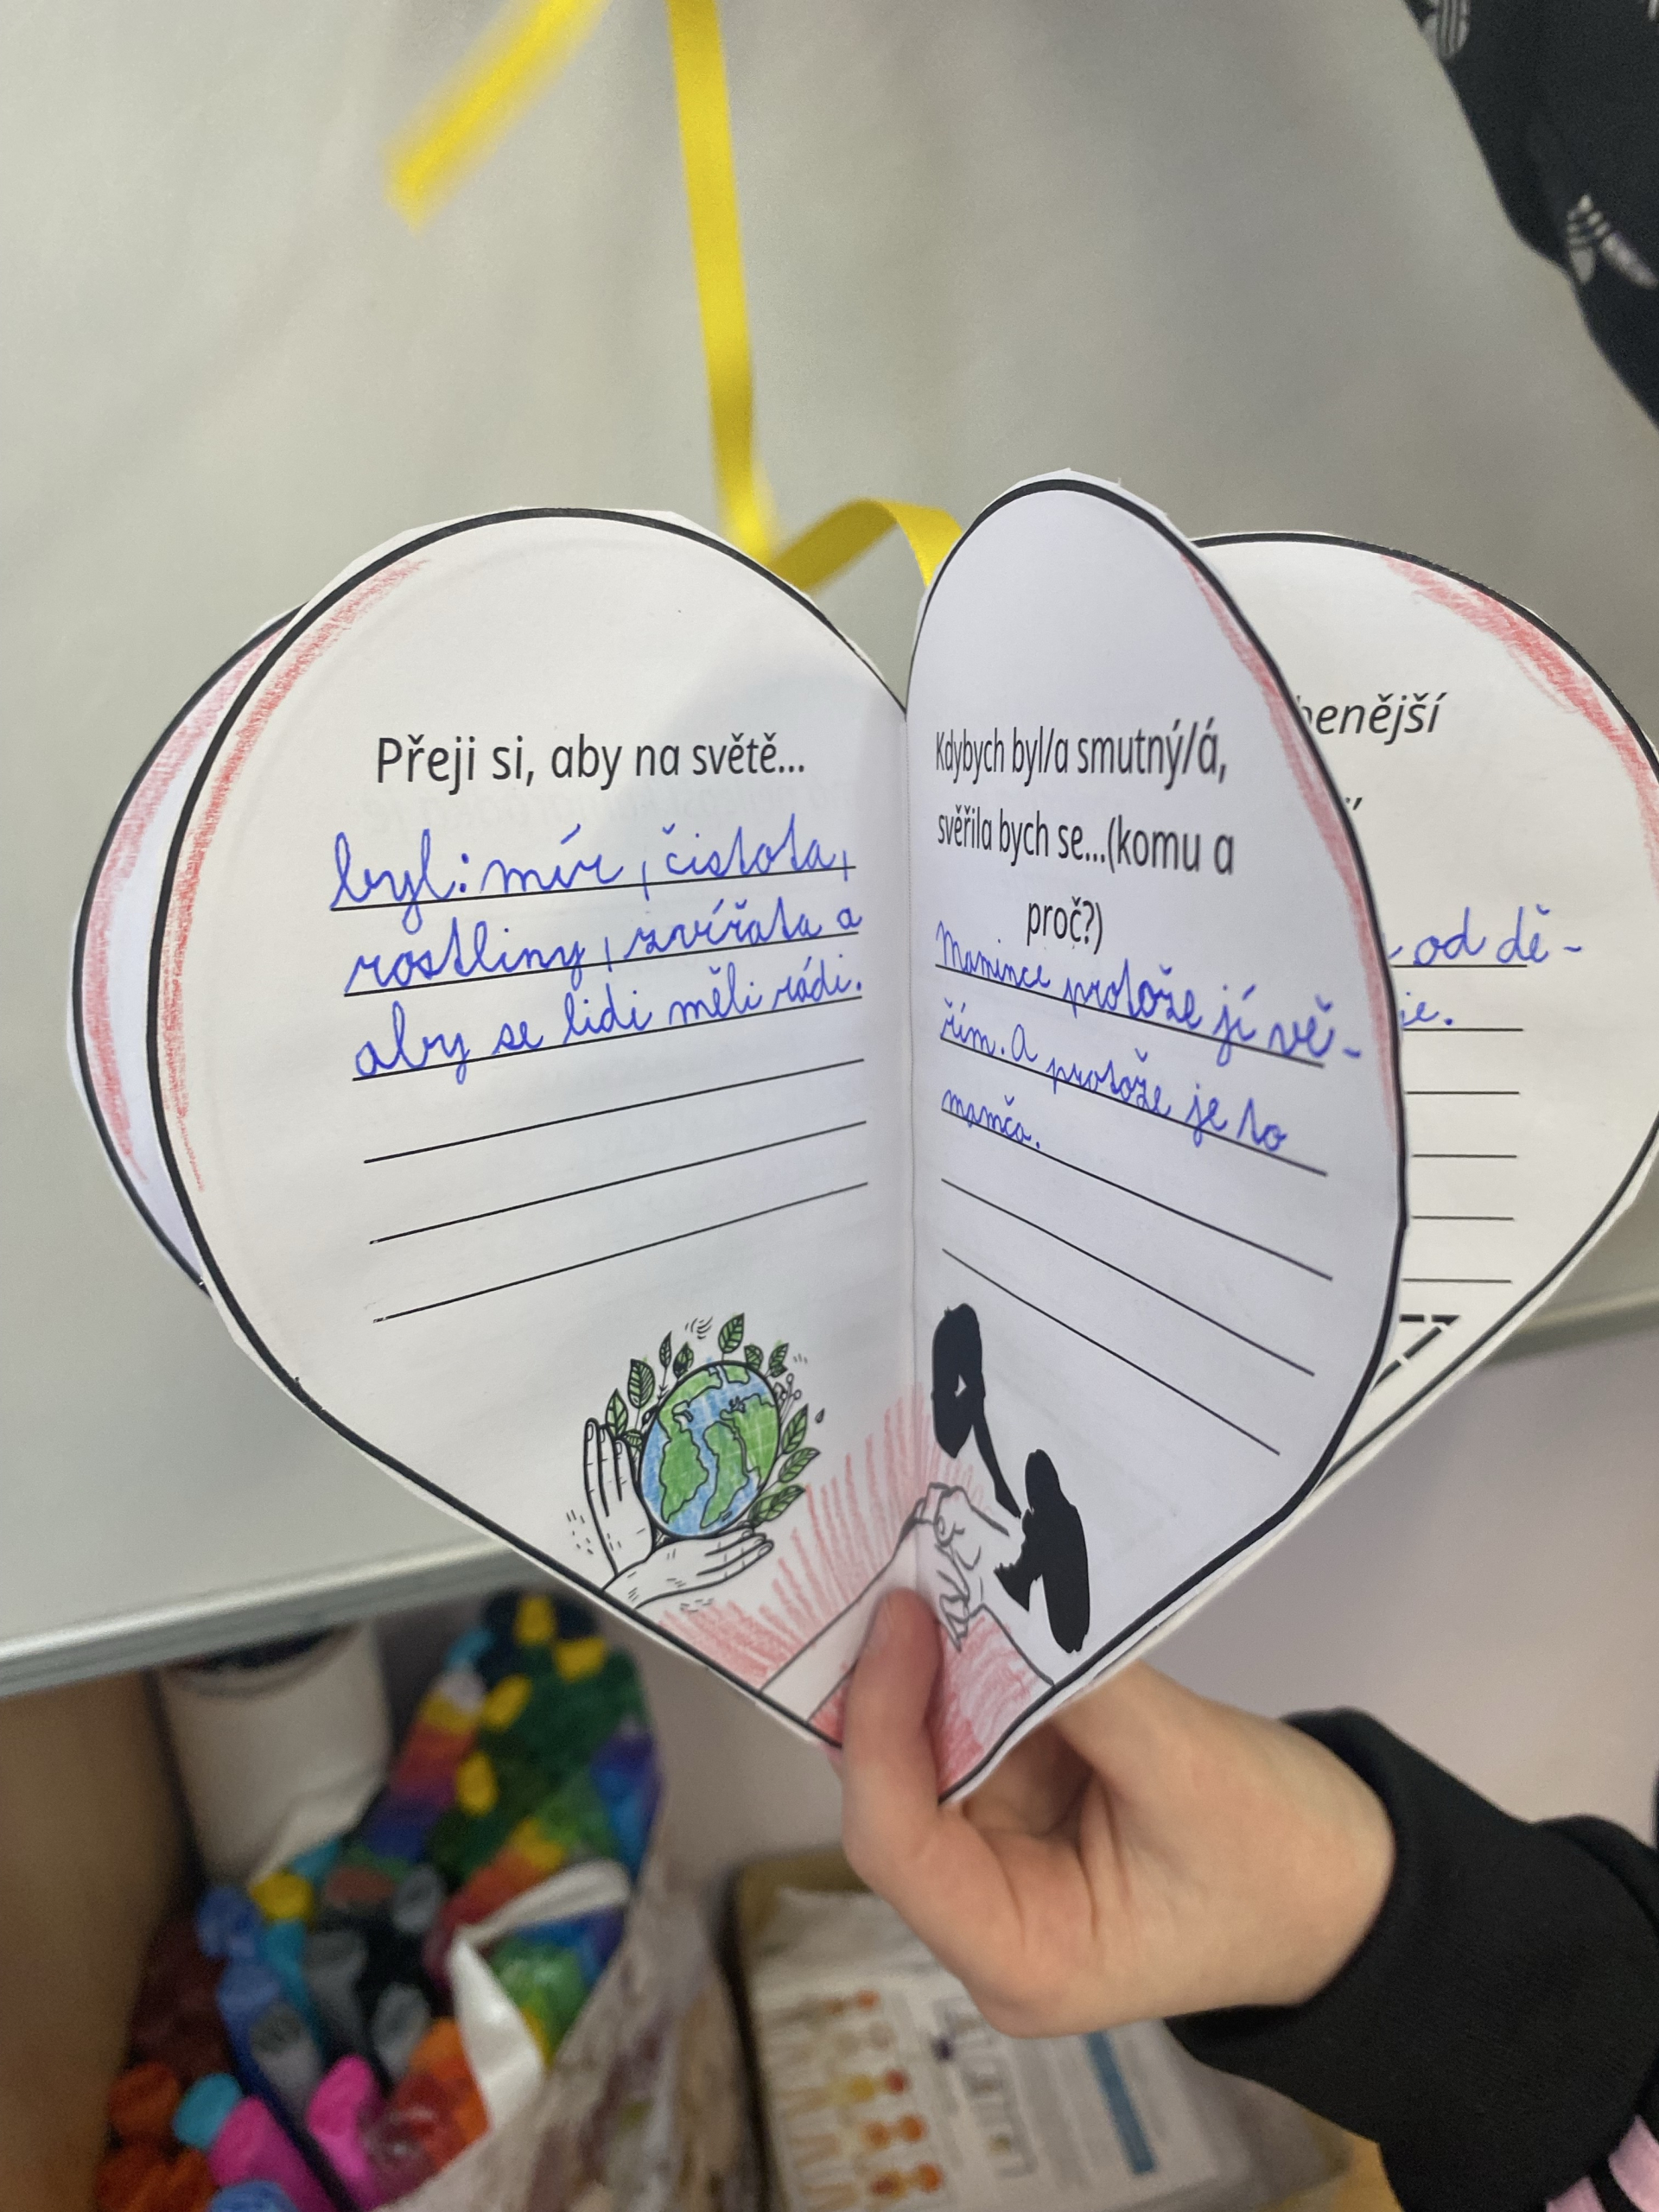 Přeji si, aby na světě...
byl: mír, čistota,
rostliny, zvířata a
aby se lidi měli rádi.
Kdybych byl/a smutný/á,
svěřila bych se...(komu a
proč?)
Mamince protože jí vě-
řím. A protože je to
mamča.
benější
od dě-
je.